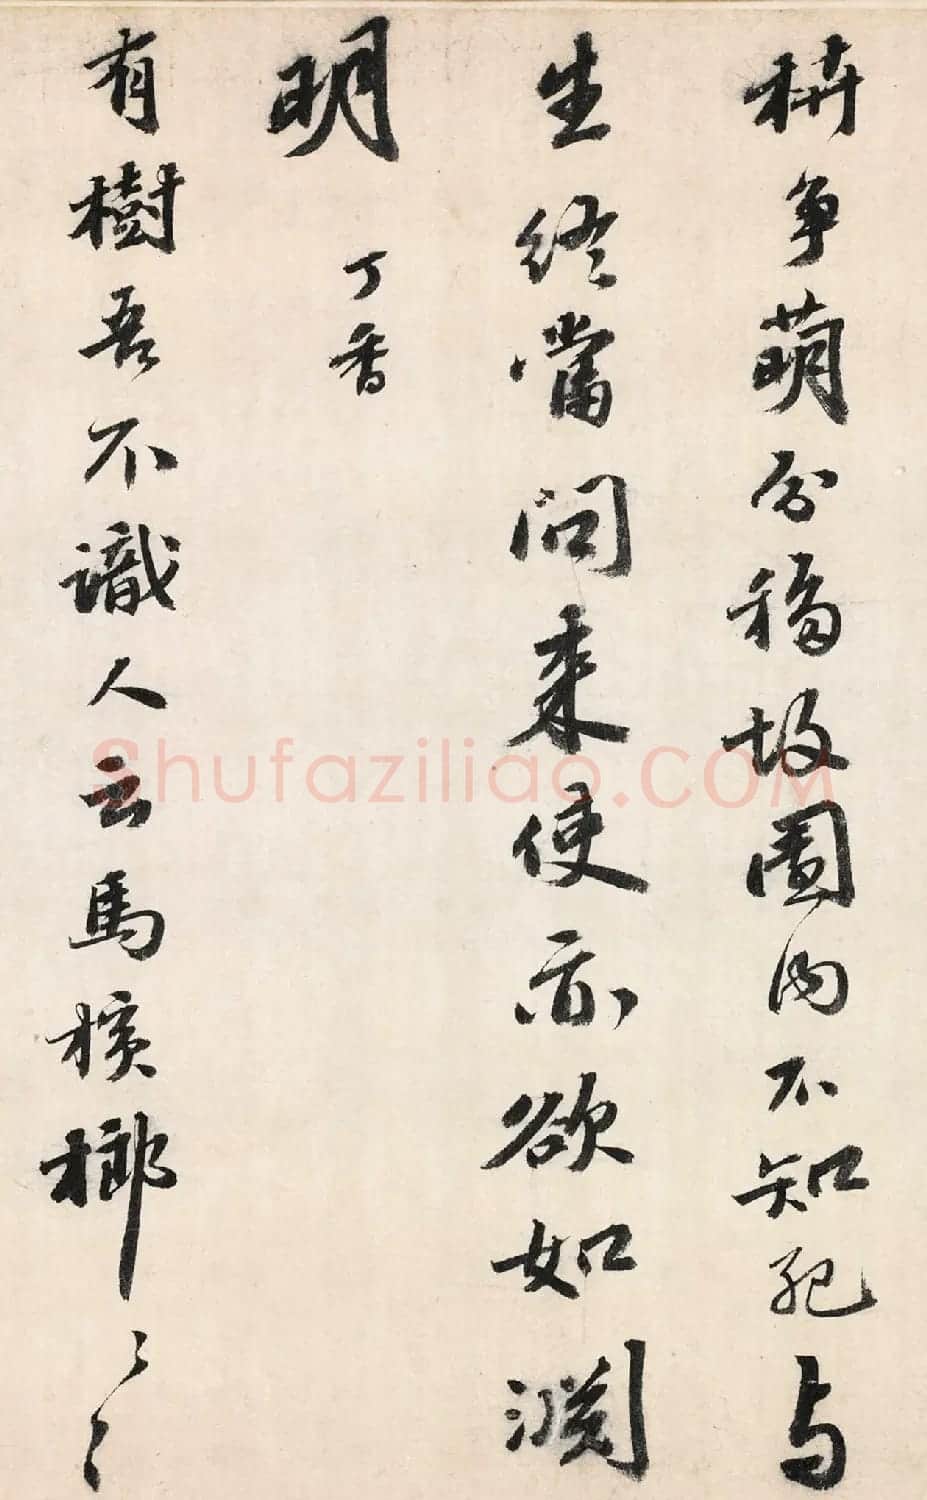 争萌分移故園内不知死与
生終當問来使亦欲如淵
明 丁香
有樹吾不識人云馬檳榔〻〻
shufaziliao.COM